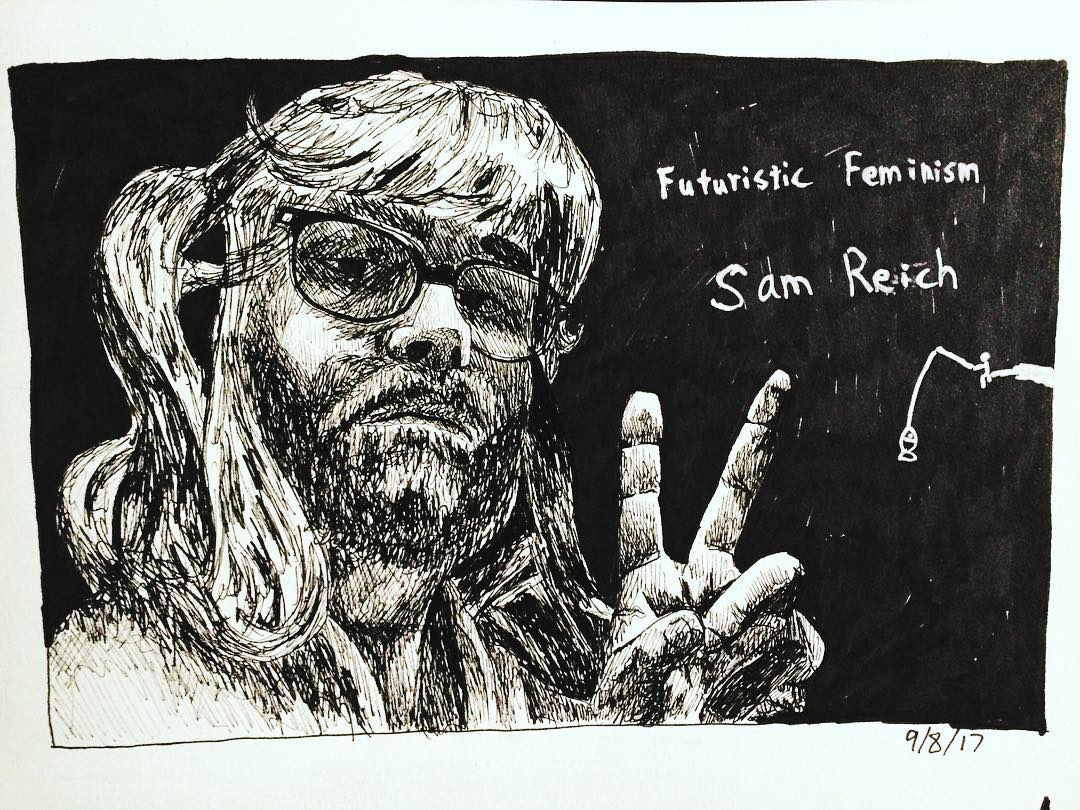 Futuristic Feminism
Sam Reich
9/8/17